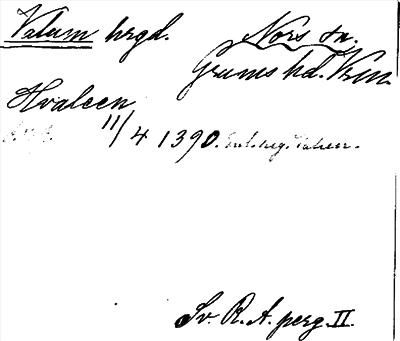 Valum hrgd. Nors sn.
Grums hd. Vrm.
Hvaleen
11/4 1390. Enl. reg. Valen.
Sv. R. A. perg. II.